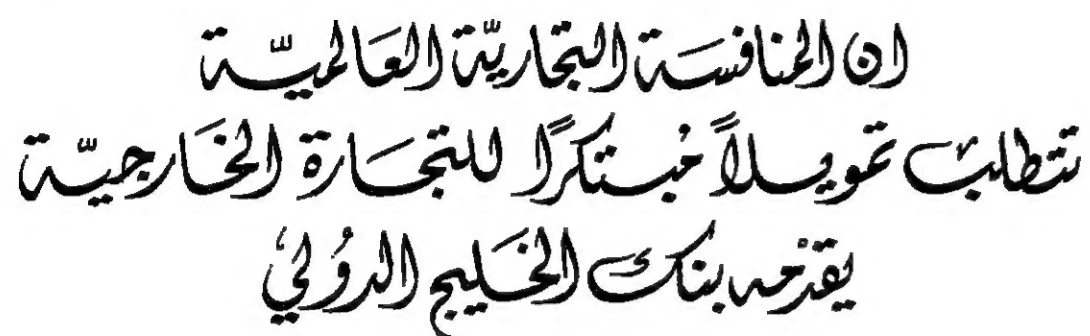 ان المنافسَة التجاريّة العَالميّة
تتطلب تمويلاً مُبتكرًا للتجَارة الخَارجيّة
يقدّمه بنك الخَليج الدوُليُ